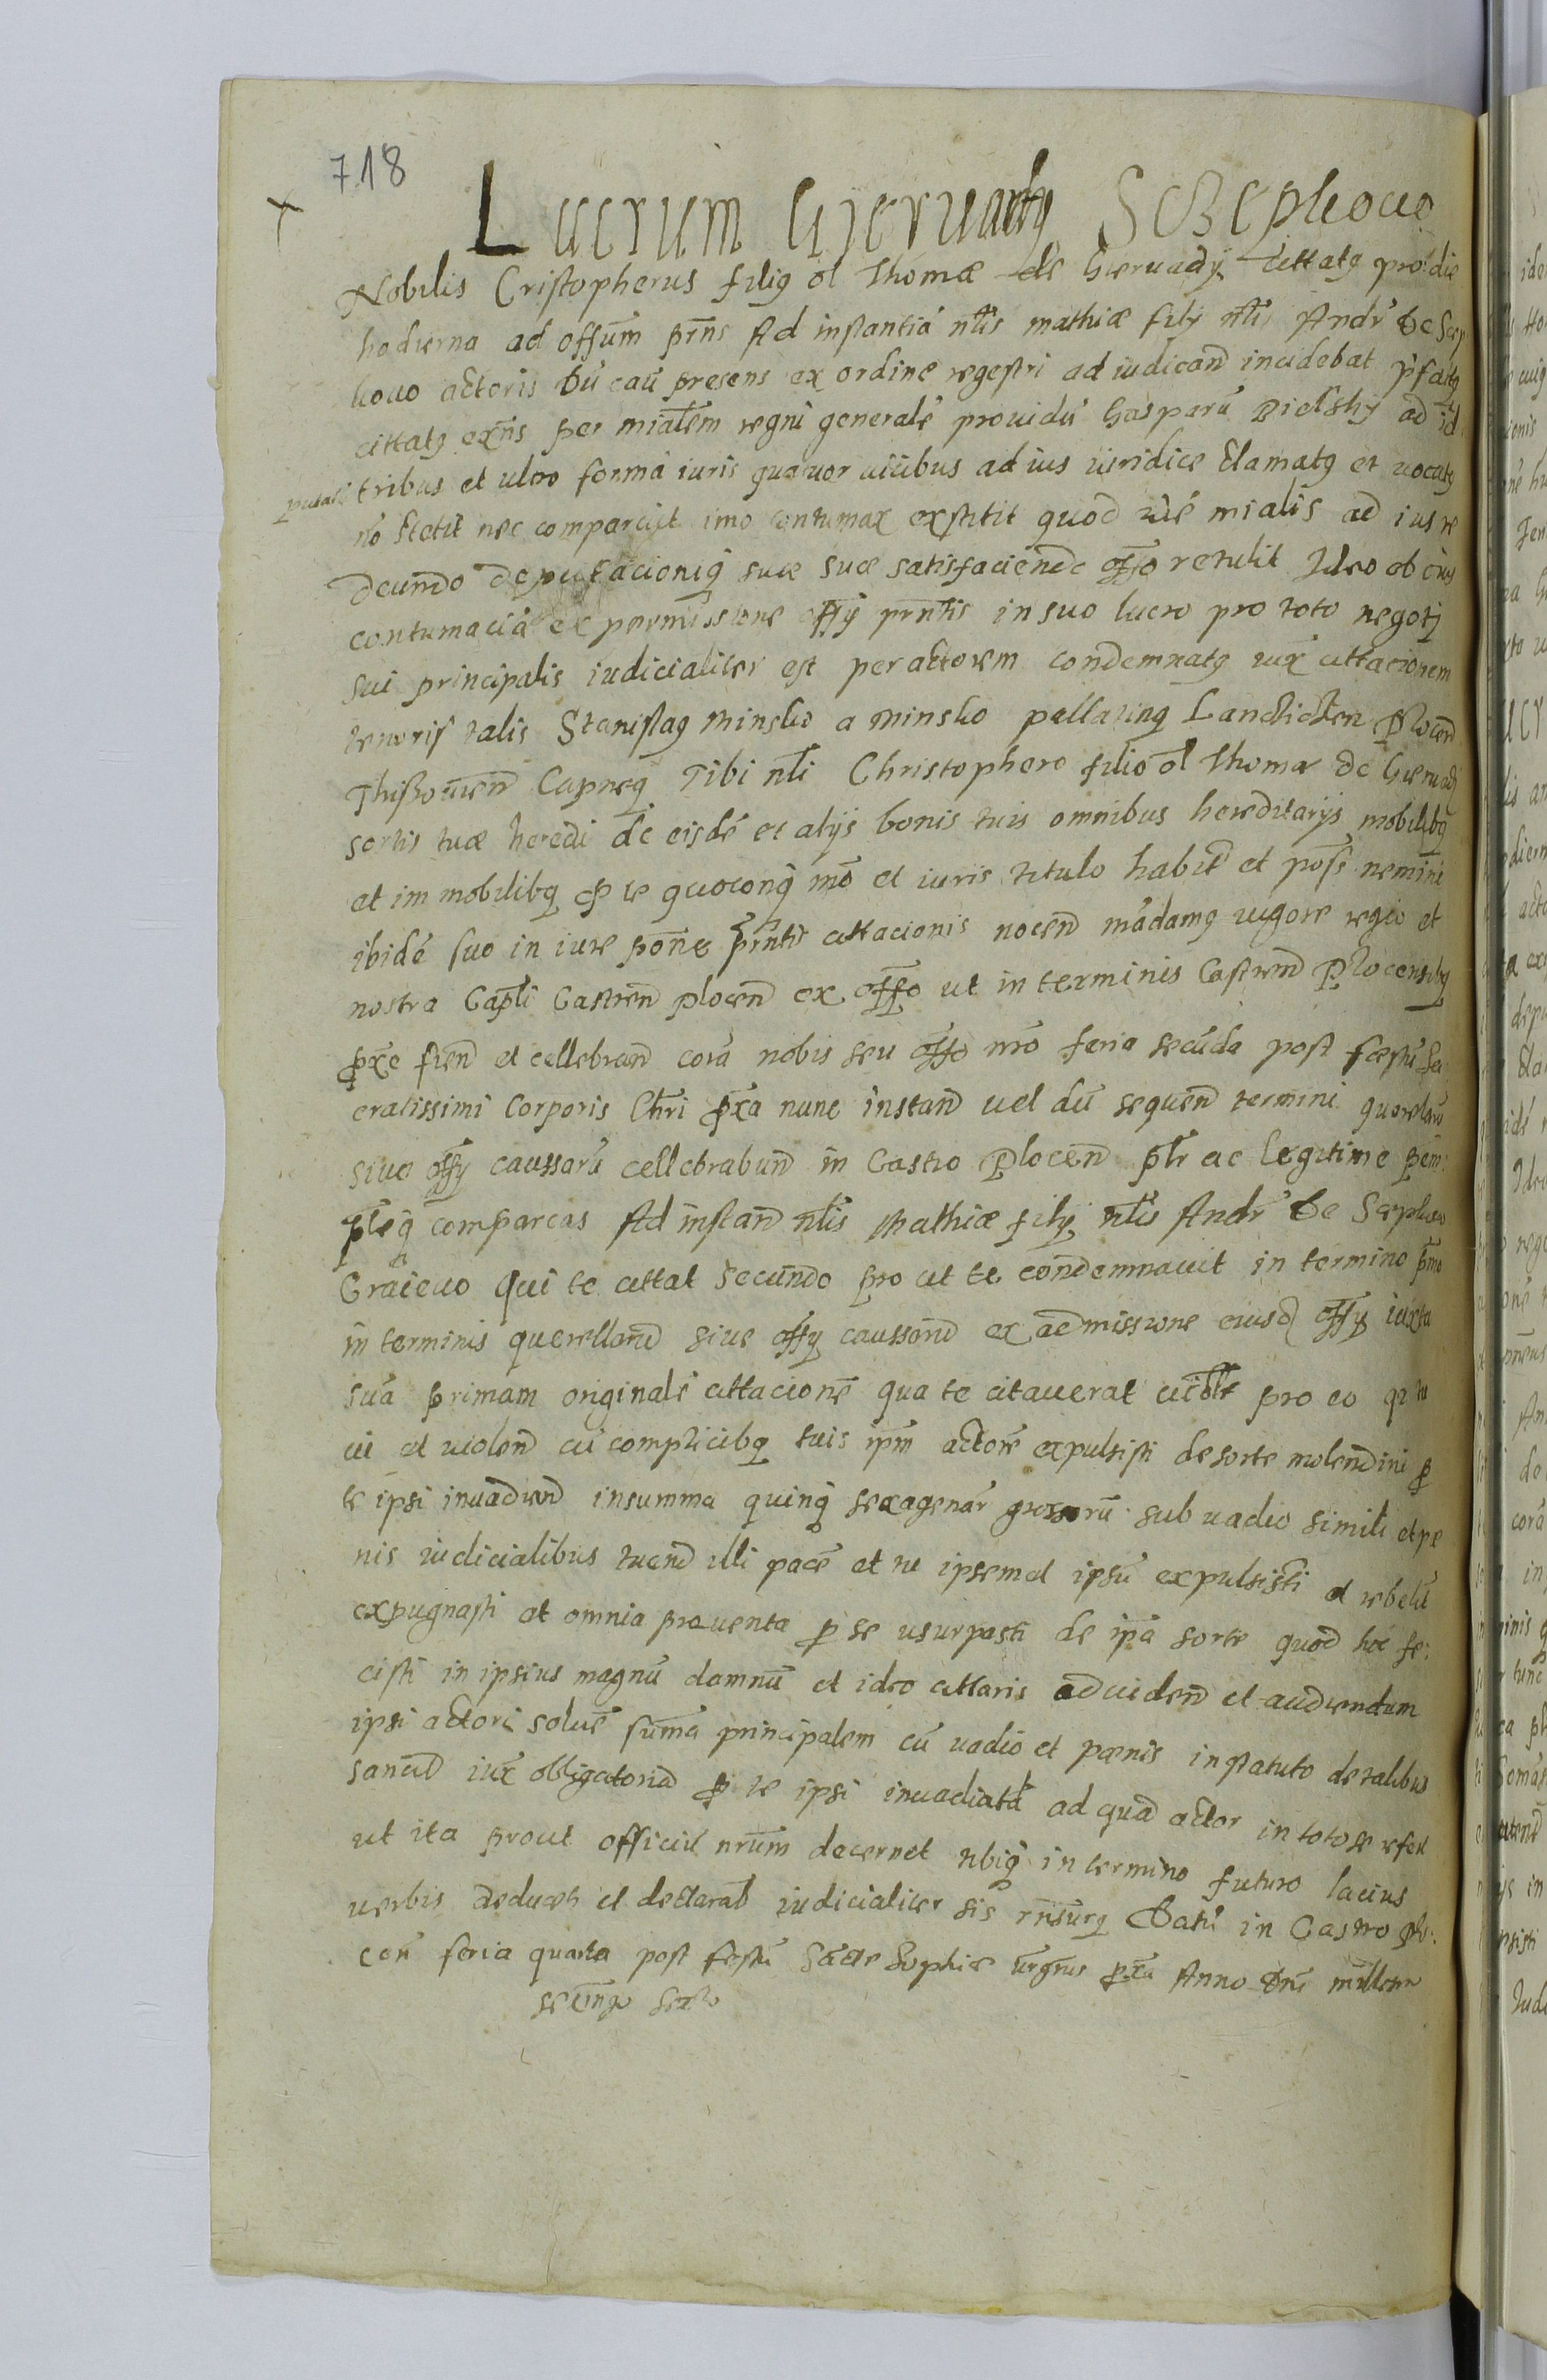 718
Lucrum Gjervady Sczepkovo
Nobilis Cristopherus filiꝯ ol Thomæ de Gieruady cittatꝯ pro die
hodierna ad offum prns Ad instantia nlis mathiæ filÿ nlis Andr de Scep
kouo actoris du cau presens ex ordine regestri ad iudicand incidebat pfatꝯ
cittatꝯ exns per mialem regni generale prouidu Gasparu Bielsky ad id
tribus et ultro forma iuris quatuor uicibus ad ius iuridice clamatꝯ et uocatꝯ
no stetit nec comparuit imo contumax exstitit quod ide mialis ad ius re
deundo deputacioniq suæ satisfaciendo offo retulit Ideo ob eius
contumacia ex permissione offÿ prntis in suo lucro pro toto negotÿ
sui principalis iudicialiter est per actorem condemnatꝯ iux cittacionem
tenoris talis Stanislaꝯ Minsko a Minsko pallatinꝯ Lancicien Plocen
Capneꝯ Tibi nli Christophoro filio ol Thomæ de Gieruady
sortis tuæ heredi de eisde et alÿs bonis tuis omnibus hereditarÿs mobilibꝯ
et im mobilibꝯ p te quocunq mo et iuris titulo habit et poss nemini
ibide suo in iure prntis cittacionis nocen madamꝯ uigore regio et
nostra Capli Castren plocen ex offo ut in terminis Castren Plocensibꝯ
pxe fien et cellebran cora nobis seu offo nro feria secuda post festu Sa
cratissimi Corporis Chri pxa nunc instan uel du sequen termini querelaru
siue offÿ caussaru cellebrabun in Castro Plocen plr ac legitime pem
pleq compareas Ad instan nlis Mathiæ filÿ nlis Andr de Scepkouo
Graieuo qui te cittat secundo pro ut te condemnauit in termino pmo
in terminis querellaru siue offÿ caussaru ex admissione eiusd offÿ iuxta
sua primam originale cittacione qua te citauerat pro eo qz tu
ui et uiolen cu complicibꝯ tuis ipm actore expulsisti de sorte molendini p
te ipsi inuadien in summa quinq sexagenar grossoru sub uadio simili et pe
nis iudicialibus tuend illi pace et tu ipsemet ipsu expulsisti et
expugnasti at omnia prouenta p se usurpasti de ipa sorte quod hoc fe
cisti in ipsius magnu damnu et ideo cittaris ad uiden et audiendum
ipsi actori solue suma principalem cu uadio et pœnis in statuto de talibus
sancit iux obligatoria p te ipsi inuadiata ad qua actor in toto se refert
ut ita prout officiu nrum decernet tibiq in termino futuro lacius
uerbis deducet et declarab iudicialiter sis rnsurꝯ Datu in Castro plo
cen feria quarta post festu Sacte Sophiæ uirginis pxa Anno Dni millesmo
sexto